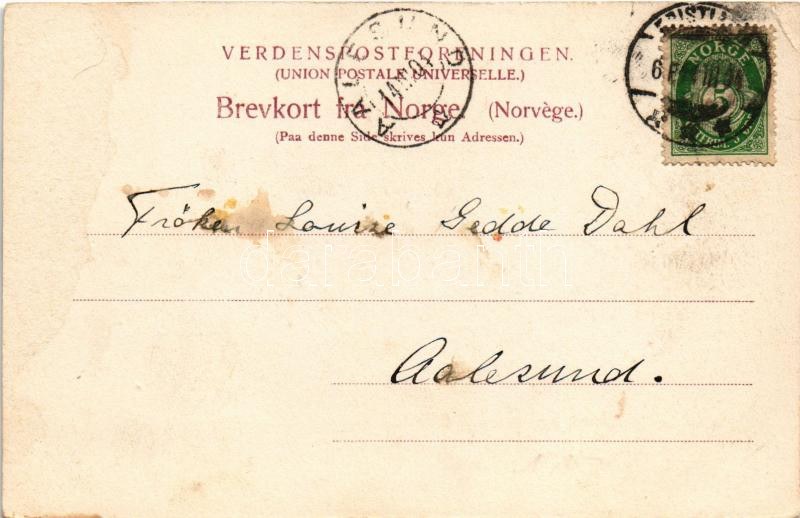 VERDENSPOSTFORENINGEN.
(UNION POSTALE UNIVERSELLE.)
Brevkort fra Norge. (Norvège.)
(Paa denne Side skrives kun Adressen.)
AALESUND
NORGE
5
Fröken Louise Gedde Dahl
darabanth
Aalesund.